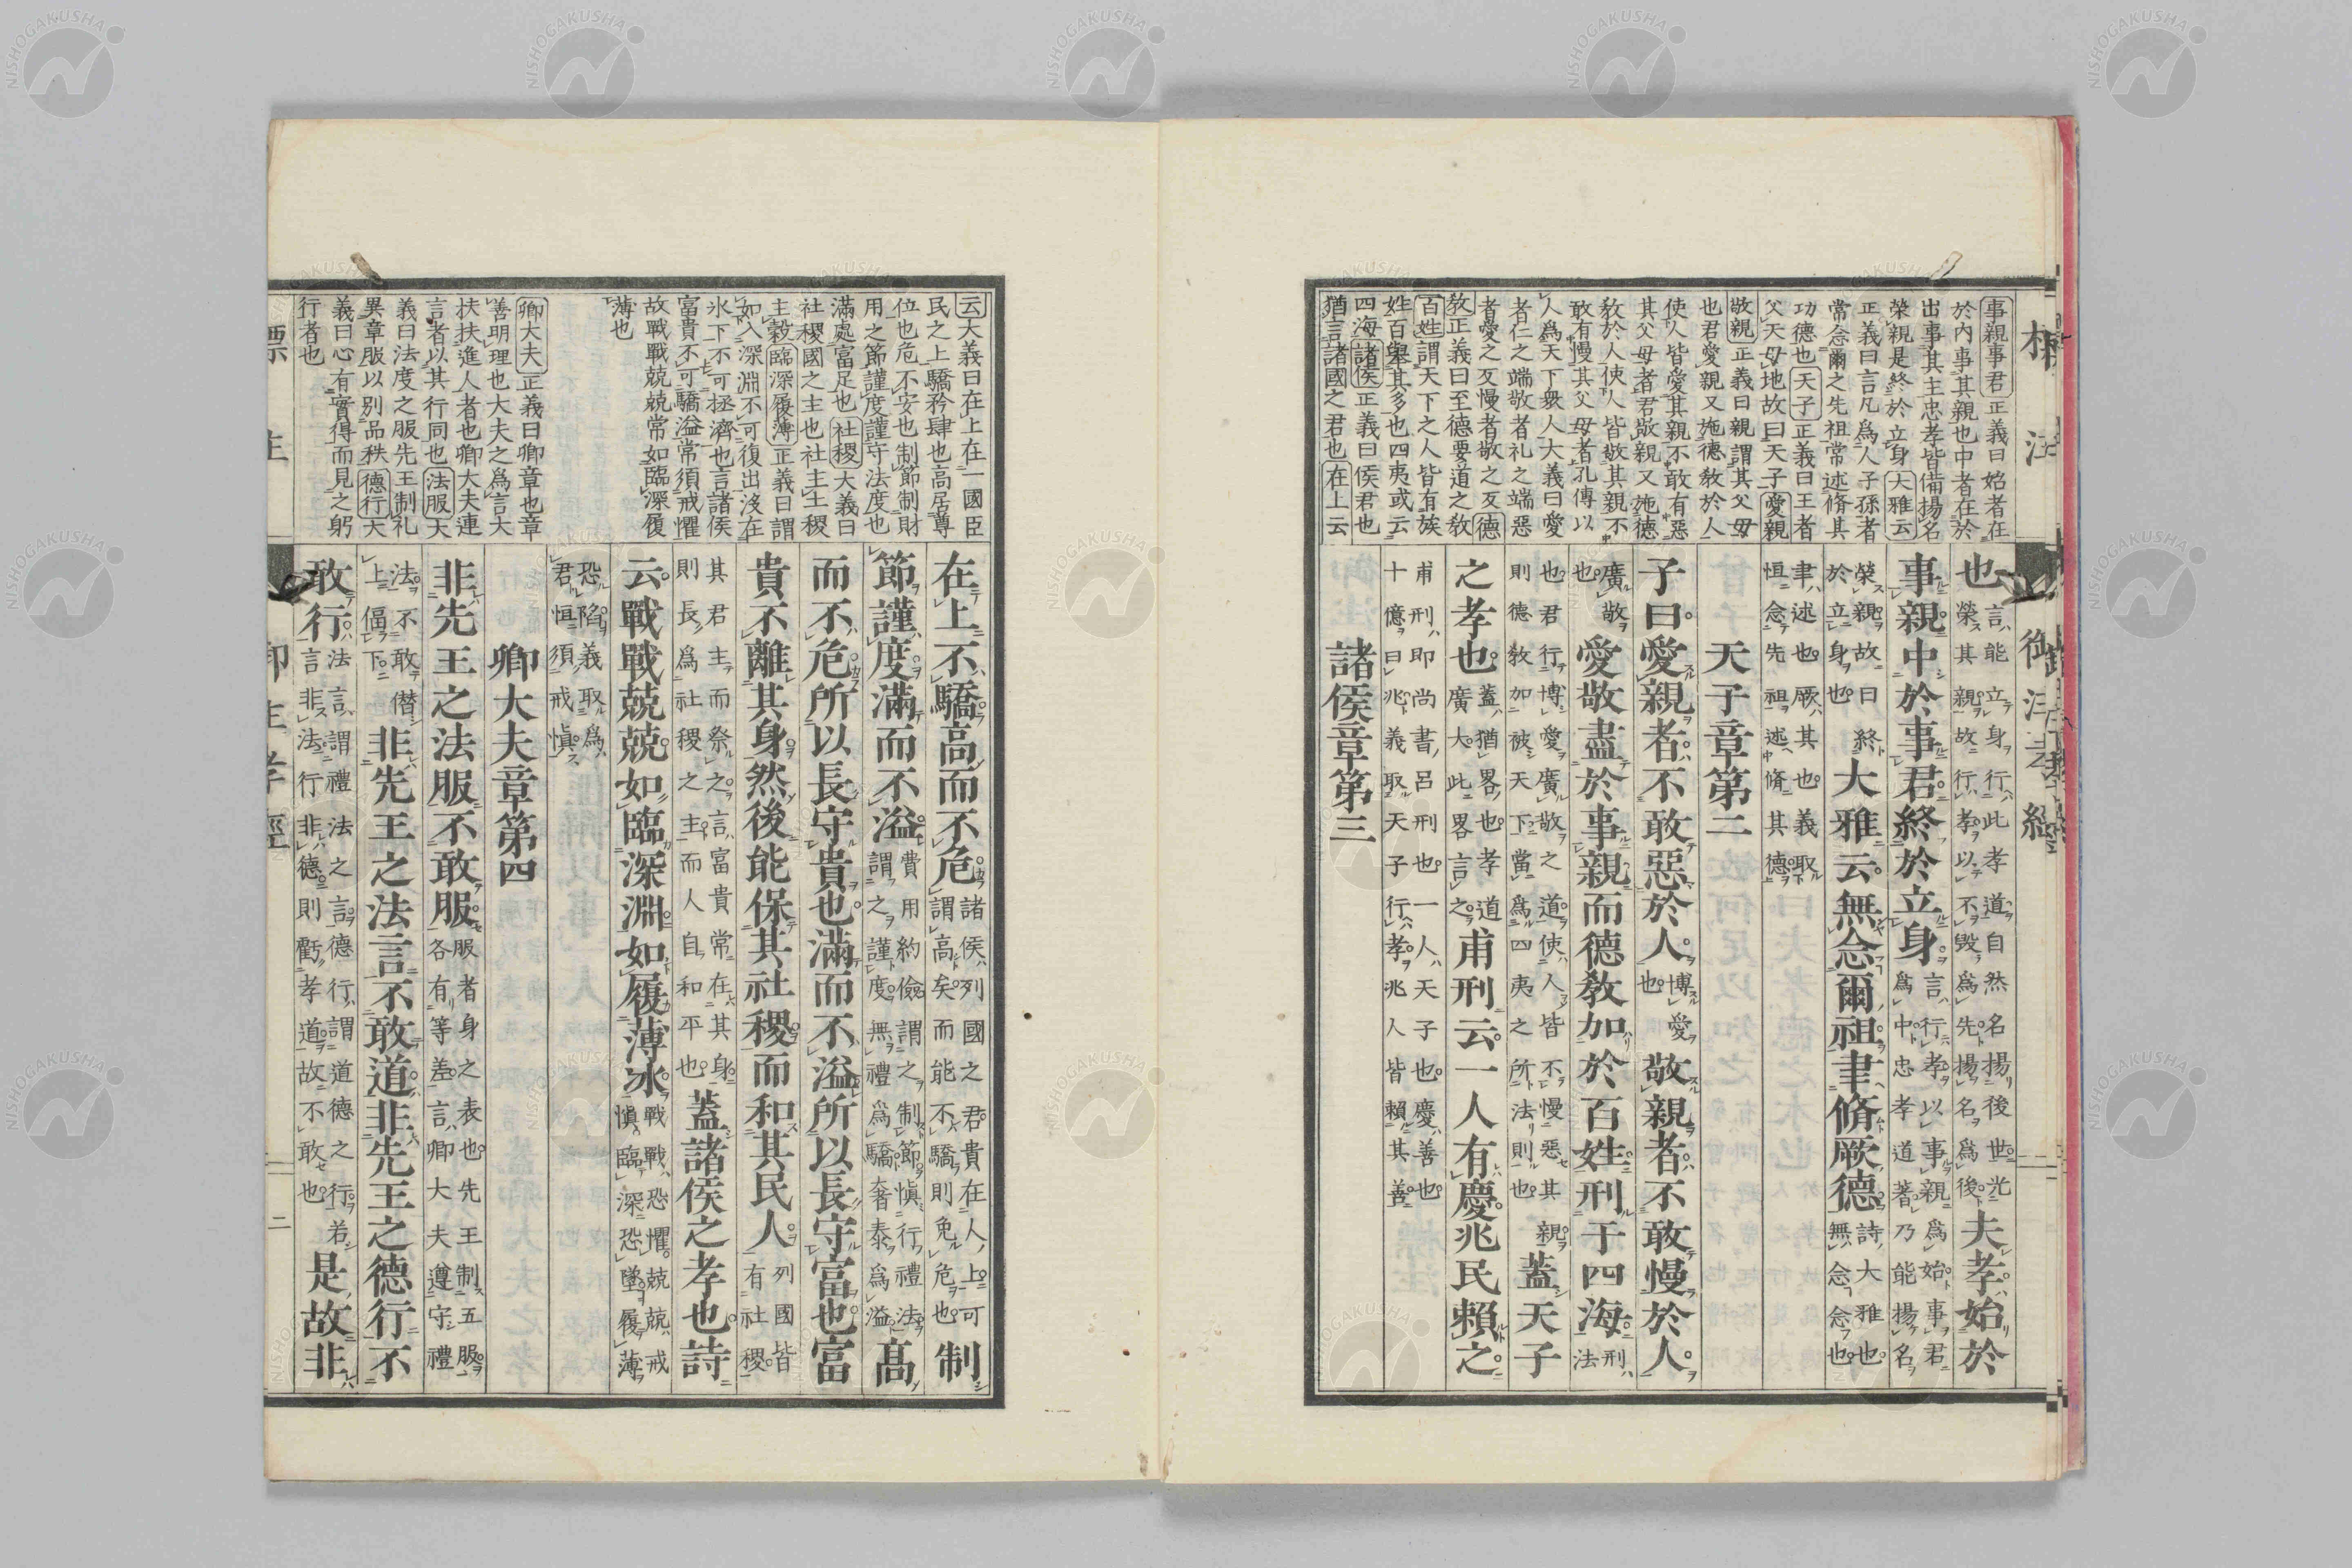 事親事君正義曰始者在
於内事其親也中者在於
出事其主忠孝皆備揚名
榮親是終於立身大雅云
正義曰言凡爲人子孫者
常念爾之先祖常述脩其
功德也天子正義曰王者
父天母地故曰天子愛親
敬親正義曰親謂其父母
也君愛親又施德敎於人
使人皆愛其親不敢有惡
其父母者君敬親又施德
敎於人使人皆敬其親不
敢有慢其父母者孔傳以
人爲天下衆人大義曰愛
者仁之端敬者礼之端惡
者愛之反慢者敬之反德
敎正義曰至德要道之敎
百姓謂天下之人皆有族
姓百擧其多也四夷或云
四海諸侯正義曰侯君也
猶言諸國之君也在上云
也言能立身行此孝道自然名揚後世光榮其親故行孝以不毀爲先揚名爲後夫孝始於
事親中於事君終於立身言行孝以事親爲始事君爲中忠孝道著乃能揚名
榮親故曰終於立身也大雅云無念爾祖聿脩厥德詩大雅也無念念也
聿述也厥其也義取恒念先祖述脩其德
天子章第二
子曰愛親者不敢惡於人博愛也敬親者不敢慢於人
廣敬也愛敬盡於事親而德敎加於百姓刑于四海刑法
也君行博愛廣敬之道使人皆不慢惡其親則德敎加被天下當爲四夷之所法則也蓋天子
之孝也蓋猶畧也孝道廣大此畧言之甫刑云一人有慶兆民賴之
甫刑即尚書呂刑也一人天子也慶善也十億曰兆義取天子行孝兆人皆賴其善
諸侯章第三
云大義曰在上在一國臣
民之上驕矜肆也高居尊
位也危不安也制節制財
用之節謹度謹守法度也
滿處富足也社稷大義曰
社稷國之主也社主土稷
主穀臨深履薄正義曰謂
如入深淵不可復出沒在
氷下不可拯濟也言諸侯
富貴不可驕溢常須戒懼
故戰戰兢兢常如臨深履
薄也
卿大夫正義曰卿章也章
善明理也大夫之爲言大
扶扶進人者也卿大夫連
言者以其行同也法服大
義曰法度之服先王制礼
異章服以别品秩德行大
義曰心有實得而見之躬
行者也
在上不驕高而不危諸侯列國之君貴在人上可謂高矣而能不驕則免危也制
節謹度滿而不溢費用約儉謂之制節愼行禮法謂之謹度無禮爲驕奢泰爲溢高
而不危所以長守貴也滿而不溢所以長守富也富
貴不離其身然後能保其社稷而和其民人列國皆有社稷
其君主而祭之言富貴常在其身則長爲社稷之主而人自和平也蓋諸侯之孝也詩
云戰戰兢兢如臨深淵如履薄冰戰戰恐懼兢兢戒愼臨深恐墜履薄
恐陷義取爲君恒須戒愼
卿大夫章第四
非先王之法服不敢服服者身之表也先王制五服各有等差言卿大夫遵守禮
法不敢僭上偪下非先王之法言不敢道非先王之德行不
敢行法言謂禮法之言德行謂道德之行若言非法行非德則虧孝道故不敢也是故非
二
NISHOGAKUSHA